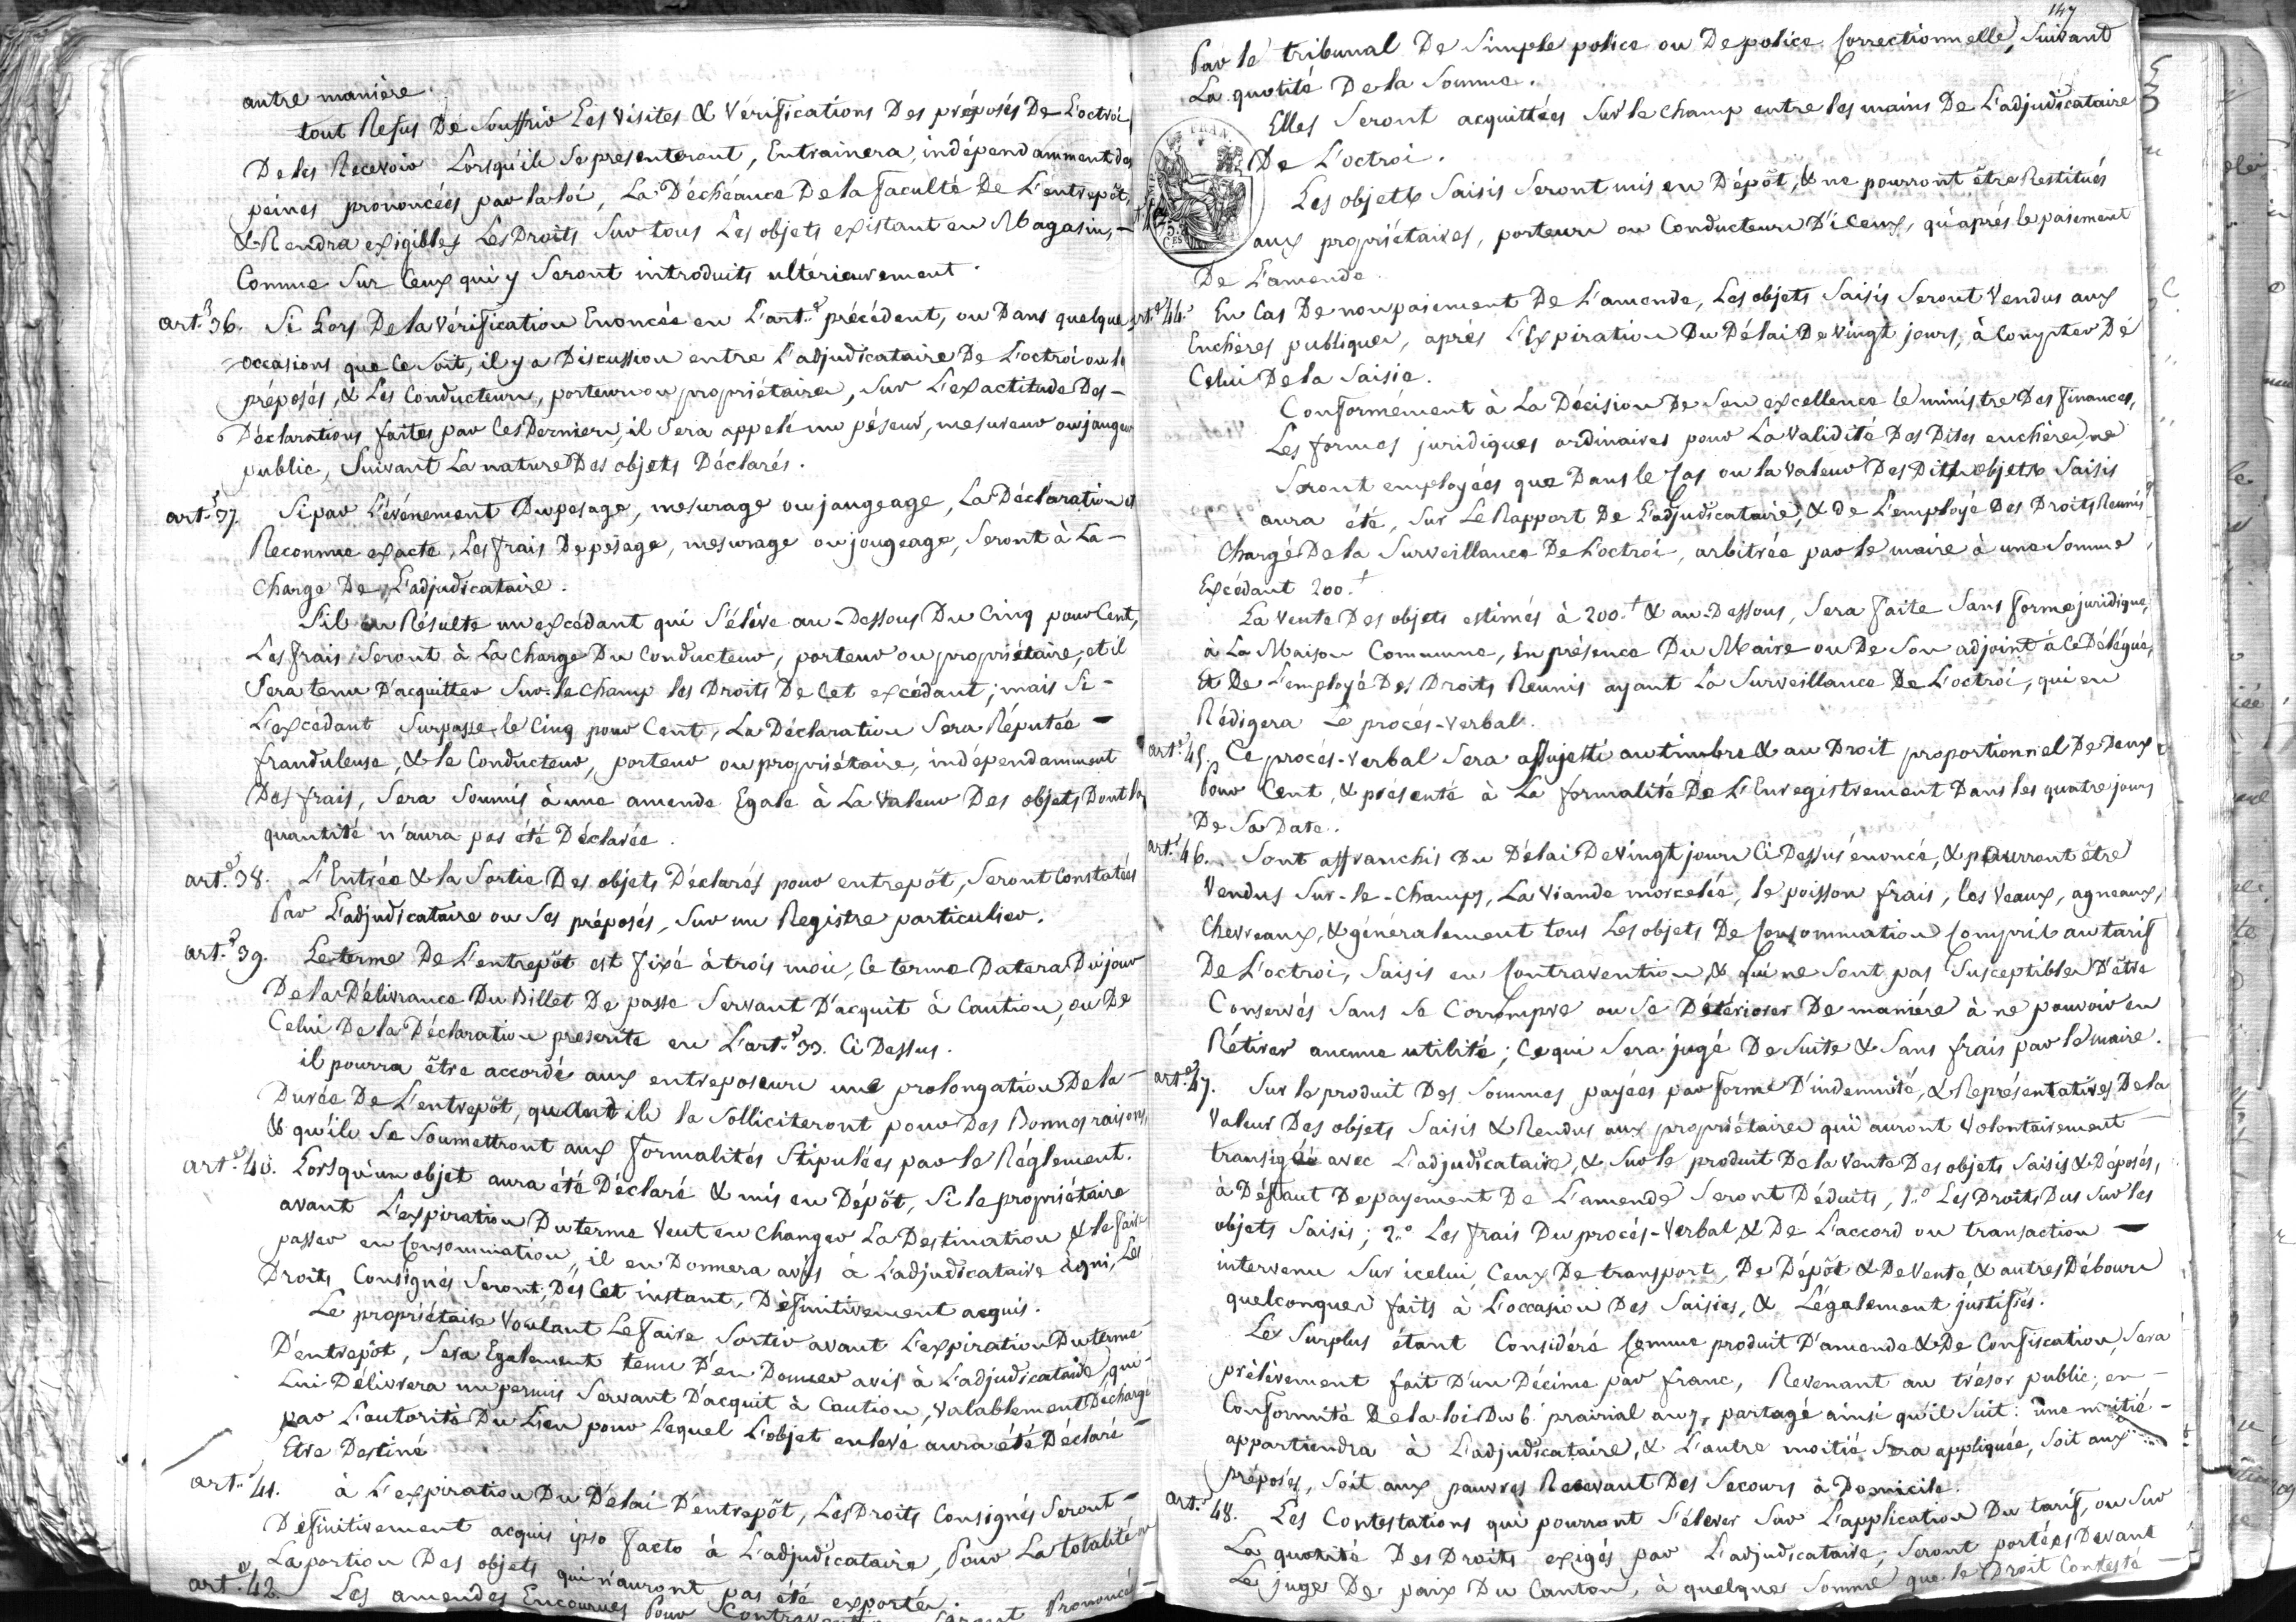 autre manière.
tout Refus De Souffrir Les visites & Vérifications Des préposés De L'octroi,
De les Recevoir Lorsqu'ils Se presenteront, Entrainera, indépendamment des
peines prononcées par la loi, La Déchéance De la faculté De L'entrepôt,
& Rendra exigibles Les Droits Sur tous Les objets existant en Magasin, –
Comme Sur Ceux qui y Seront introduits ultérieurement.
art.e 36. Si Lors De la Vérification Enoncée en L'art.e précédent, ou Dans quelque
occasions que ce Soit, il y a Discussion entre L'adjudicataire De L'octroi ou le
préposés, & Les Conducteurs, porteurs ou propriétaires, Sur L'exactitude Des –
Déclarations faites par Ces Derniers, il Sera appelé un péseur, mesureur ou jaugeur
public, Suivant La nature Des objets Déclarés.
art.e 37. Si par L'événement Du pesage, mesurage ou jaugeage, La Déclaration est
Reconnue exacte, Les frais De pesage, mesurage ou jaugeage, Seront à La –
Charge De L'adjudicataire.
S'il en Résulte un excédant qui S'élève au-Dessous Du Cinq pour Cent,
Les frais Seront à La Charge Du Conducteur, porteur ou propriétaire, et il
Sera tenu D'acquitter Sur-le-champ les Droits De Cet excédant; mais Si –
L'excédant Surpasse le Cinq pour Cent, La Déclaration Sera Réputée –
frauduleuse, & le Conducteur, porteur ou propriétaire, indépendamment
Des frais, Sera Soumis à une amende Egale à La Valeur Des objets Dont la
quantité n'aura pas été Déclarée.
art.e 38. L'Entrée & la Sortie Des objets Déclarés pour entrepôt, Seront Constatées
Par L'adjudicataire ou Ses préposés, Sur un Registre particulier.
art.e 39. Le terme De L'entrepôt est fixé à trois mois, Ce terme Datera Du jour
De la Délivrance Du Billet De passe Servant D'acquit à Caution, ou De
Celui De la Déclaration prescrite en L'art.e 33. Ci Dessus.
il pourra être accordé aux entreposeurs une prolongation De la –
Durée De L'entrepôt, quand ils la Solliciteront pour Des Bonnes raisons,
& qu'ils Se Soumettront aux formalités Stipulées par le Réglement.
art.e 40. Lorsqu'un objet aura été Déclaré & mis en Dépôt, Si le propriétaire
avant L'expiration Du terme Veut en Changer La Destination & le faire
passer en Consommation, il en Donnera avis à L'adjudicataire à qui, Les
Droits Consignés Seront, Dès Cet instant, Définitivement acquis.
Le propriétaire Voulant Le faire Sortir avant L'expiration Du terme
D'entrepôt, Sera Egalement tenu D'en Donner avis à L'adjudicataire, qui –
Lui Délivrera un permis Servant D'acquit à Caution, Valablement Déchargé
par L'autorité Du Lieu pour Lequel L'objet enlevé aura été Déclaré –
Etre Destiné
art.e 41. à L'expiration Du Délai D'entrepôt, Les Droits Consignés Seront –
Définitivement acquis ipso facto à L'adjudicataire, Pour La totalité ou
La portion Des objets qui n'auront pas été exportés.
art.e 42. Les amendes Encourues Pour Prononcé
147
Par le tribunal De Simple police ou De police Correctionnelle, Suivant
La quotité De la Somme.
Elles Seront acquittées Sur le champ entre les mains De L'adjudicataire
De L'octroi.
Les objets Saisis Seront mis en Dépôt, & ne pourront être Restitués
aux propriétaires, porteurs ou Conducteurs D'iceux, qu'après le paiement
De L'amende.
art.e 44. En Cas De non paiement De L'amende, Les objets Saisis Seront Vendus aux
Enchères publiques, après L'Expiration Du Délai De Vingt jours, à Compter De
Celui De la Saisie.
Conformément à La Décision De Son excellence le ministre Des finances,
Les formes juridiques ordinaires pour La Validité Des Dites enchères, ne
Seront employées que Dans le Cas ou la Valeur Des Dits objets Saisis
aura été, Sur Le Rapport De L'adjudicataire, & de L'employé Des Droits Réunis
Chargé De la Surveillance De L'octroi, arbitrée par le maire à une Somme
Excédant 200.f
La Vente Des objets estimés à 200.f & au-Dessous, Sera faite Sans forme juridique,
à La Maison Commune, En présence Du Maire ou De Son adjoint à Ce Délégué,
Et De L'employé Des Droits Réunis ayant La Surveillance De L'octroi, qui en
Rédigera Le procès-verbal.
art.e 45. Ce procès-verbal Sera assujetti au timbre & au Droit proportionnel De Deux
Pour Cent, & présenté à La formalité De L'Enregistrement Dans les quatre jours
De Sa Date.
art.e 46. Sont affranchis Du Délai De Vingt jours Ci Dessus énoncé, & pourront être
Vendus Sur-le-Champ, La Viande morcelée, le poisson frais, les Veaux, agneaux,
Chevreaux, & généralement tous Les objets De Consommation Compris au tarif
De L'octroi, Saisis en Contravention, & qui ne Sont pas Susceptibles D'être
Conservés Sans Se Corrompre ou Se Détériorer De manière à ne pouvoir en
Rétirer aucune utilité; Ce qui Sera jugé De Suite & Sans frais par le maire.
art.e 47. Sur le produit Des Sommes payées par forme D'indemnité, & Représentatives De la
Valeur Des objets Saisis & Rendus aux propriétaires qui auront Volontairement
transigé avec L'adjudicataire, & Sur le produit De la Vente Des objets Saisis & Déposés,
à Défaut De payement De L'amende Seront Déduits, 1.o Les Droits Dus Sur les
objets Saisis; 2.o Les frais Du procès-Verbal & De L'accord ou transaction –
intervenu Sur icelui, Ceux De transport, De Dépôt & De Vente, & autres Débours
quelconques faits à L'occasion Des Saisies, & Légalement justifiés.
Le Surplus étant Considéré Comme produit D'amende & De Confiscation, Sera
prélèvement fait D'un Décime par franc, Revenant au trésor public, en –
Conformité De la loi Du 6. prairial an 7, partagé ainsi qu'il Suit: une moitié –
appartiendra à L'adjudicataire, & L'autre moitié Sera appliquée, Soit aux
préposés, Soit aux pauvres Recevant Des Secours à Domicile.
art.e 48. Les Contestations qui pourront S'élever Sur L'application Du tarif, ou Sur
La quotité Des Droits exigés par L'adjudicataire, Seront portées Devant
Le juge De paix Du Canton, à quelque Somme que le Droit Contesté –